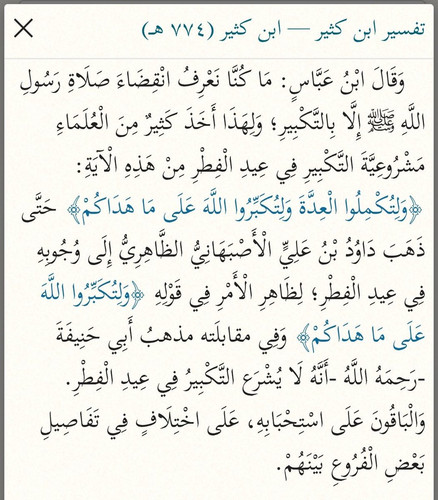 تفسير ابن كثير — ابن كثير (٧٧٤ هـ)
وَقَالَ ابْنُ عَبَّاسٍ: مَا كُنَّا نَعْرِفُ انْقِضَاءَ صَلَاةِ رَسُولِ
اللَّهِ ﷺ إِلَّا بِالتَّكْبِيرِ؛ وَلِهَذَا أَخَذَ كَثِيرٌ مِنَ الْعُلَمَاءِ
مَشْرُوعِيَّةَ التَّكْبِيرِ فِي عِيدِ الْفِطْرِ مِنْ هَذِهِ الْآيَةِ:
﴿وَلِتُكْمِلُوا الْعِدَّةَ وَلِتُكَبِّرُوا اللَّهَ عَلَى مَا هَدَاكُمْ﴾ حَتَّى
ذَهَبَ دَاوُدُ بْنُ عَلِيٍّ الْأَصْبَهَانِيُّ الظَّاهِرِيُّ إِلَى وُجُوبِهِ
فِي عِيدِ الْفِطْرِ؛ لِظَاهِرِ الْأَمْرِ فِي قَوْلِهِ ﴿وَلِتُكَبِّرُوا اللَّهَ
عَلَى مَا هَدَاكُمْ﴾ وَفِي مقابلَته مذهبُ أَبِي حَنِيفَةَ
-رَحِمَهُ اللَّهُ -أَنَّهُ لَا يُشْرَع التَّكْبِيرُ فِي عِيدِ الْفِطْرِ.
وَالْبَاقُونَ عَلَى اسْتِحْبَابِهِ، عَلَى اخْتِلَافٍ فِي تَفَاصِيلِ
بَعْضِ الْفُرُوعِ بَيْنَهُمْ.